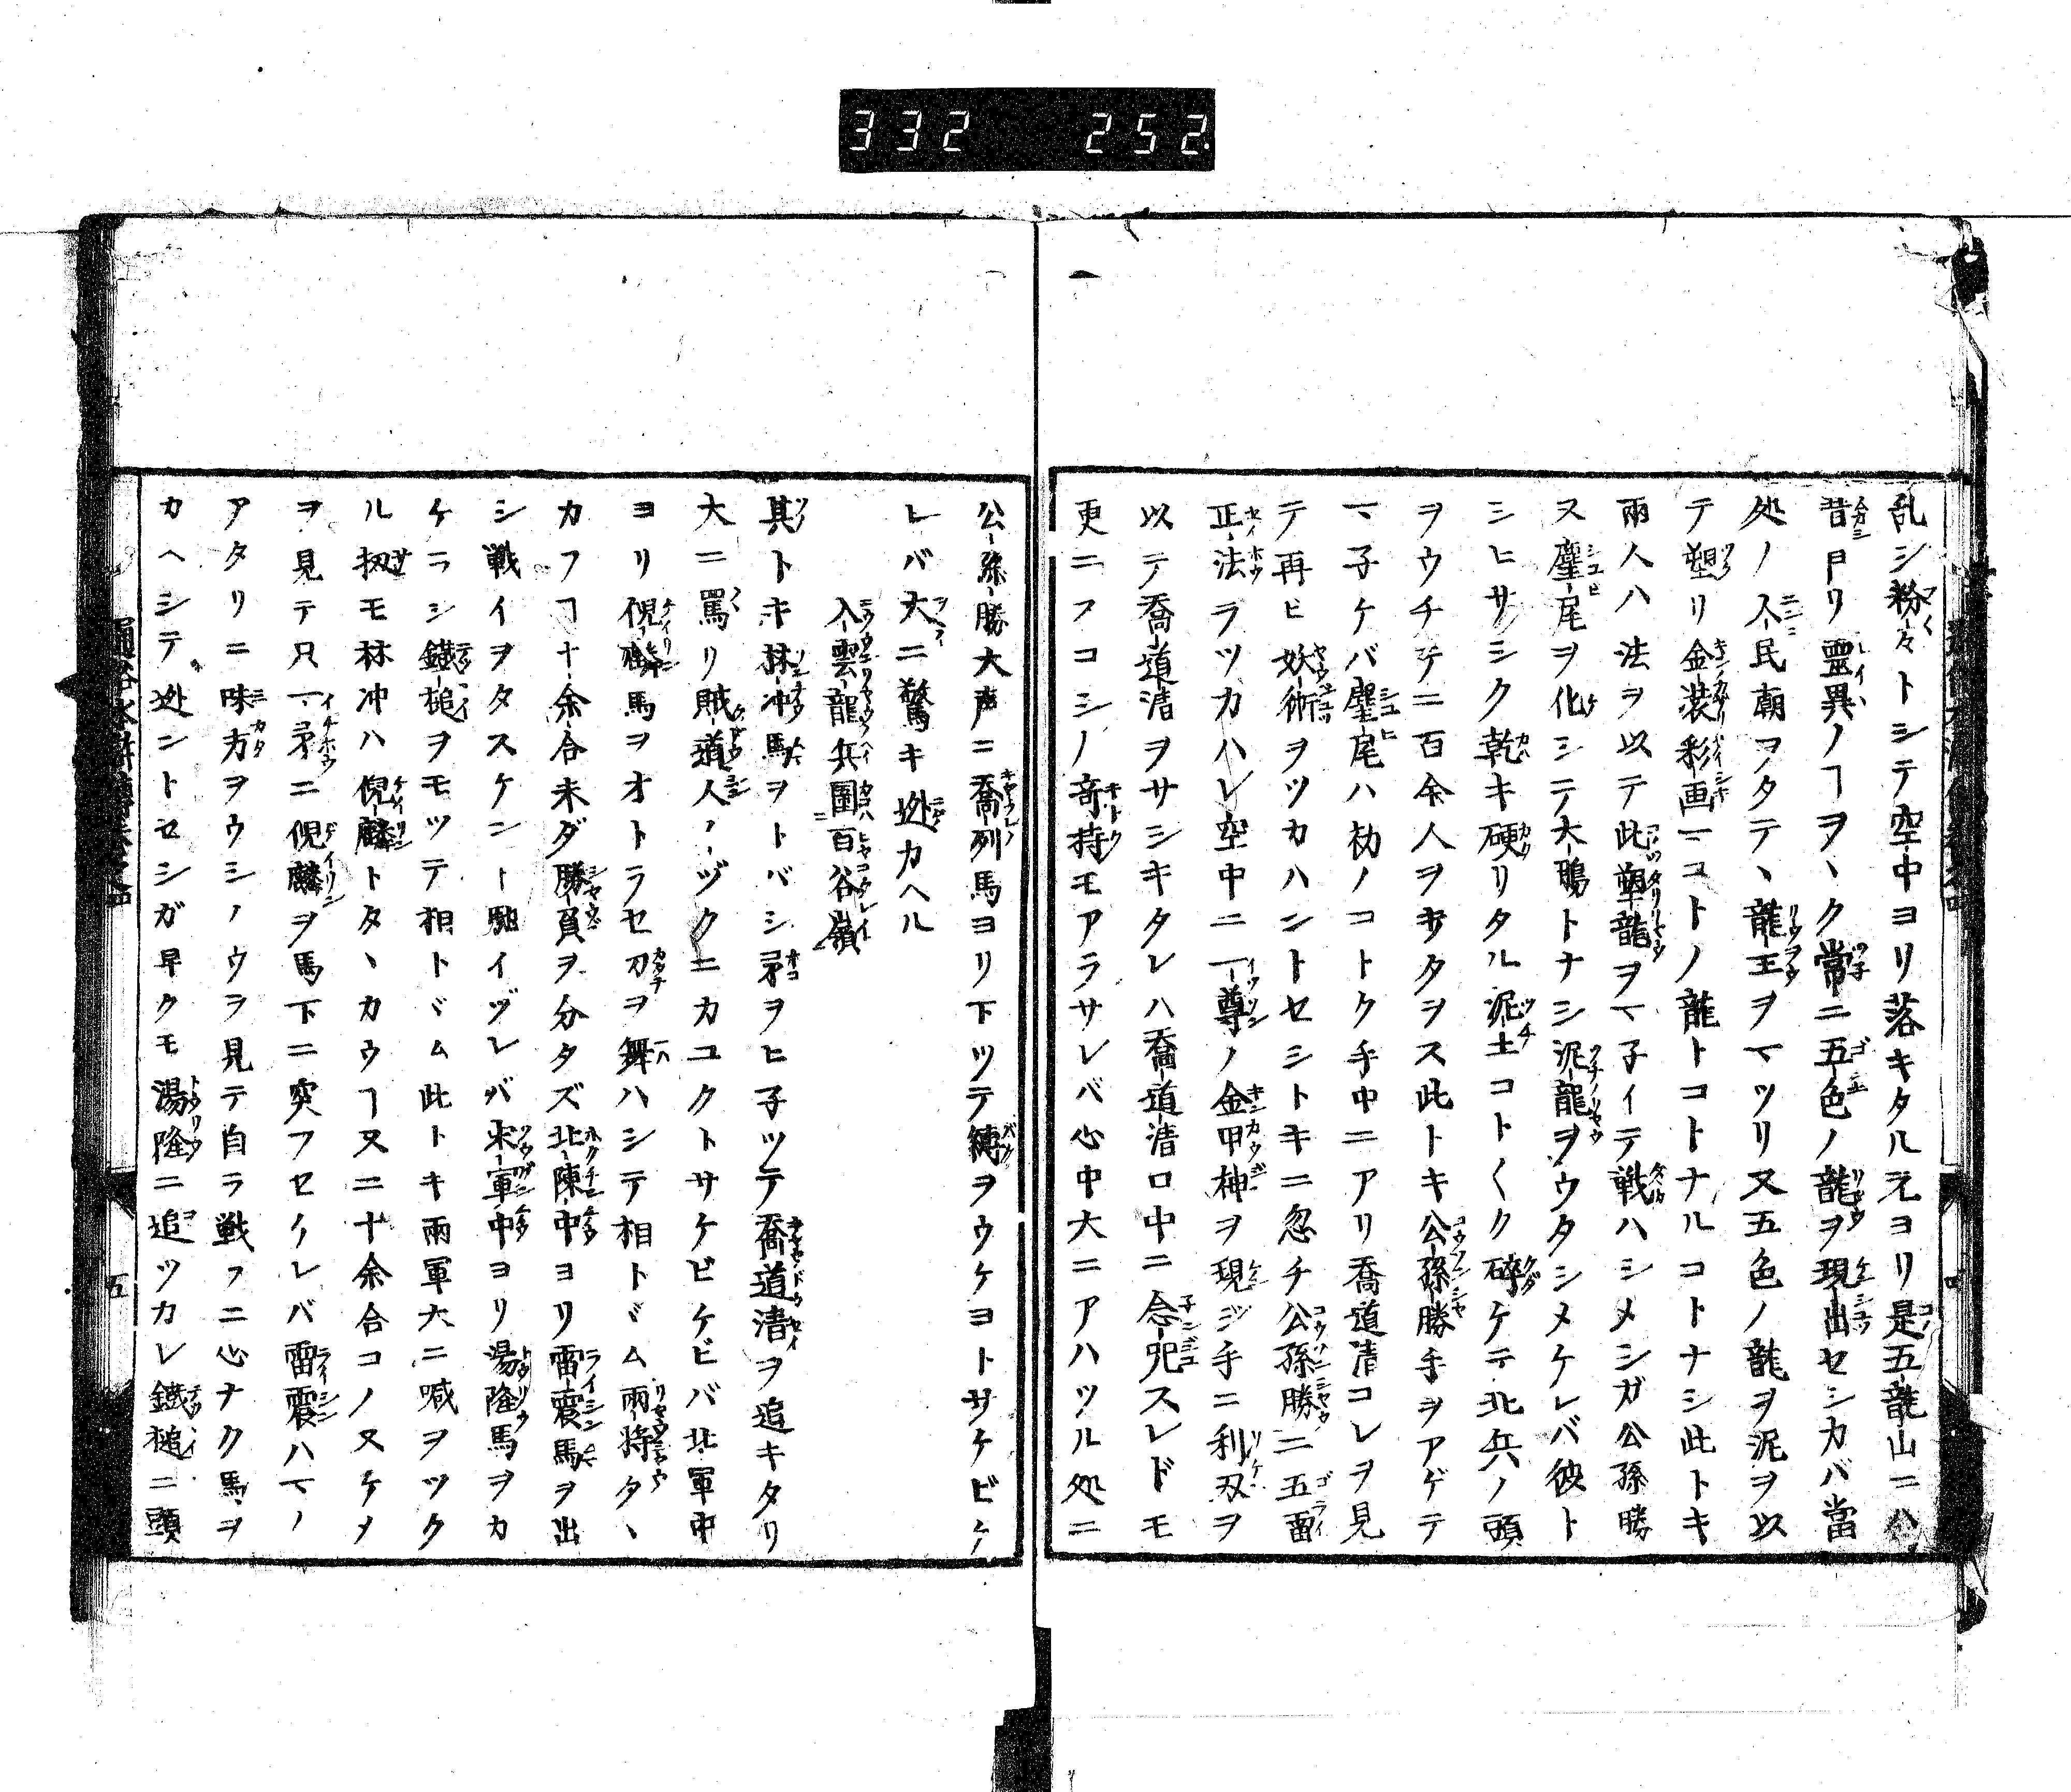 332 252
乱シ粉々トシテ空中ヨリ落キタル元ヨリ是五龍山ニハ
昔ヨリ霊異ノヿヲヽク常ニ五色ノ龍ヲ現出セシカバ當
処ノ人民朝ヲタテヽ龍王ヲマツリ又五色ノ龍ヲ泥ヲ以
テ塑リ金装彩画マコトノ龍トコトナルコトナシ此トキ
兩人ハ法ヲ以テ此塑龍ヲマ子イテ戦ハシメシガ公孫勝
又麈尾ヲ化シテ大鵬トナシ泥龍ヲウタシメケレバ彼ト
シヒサシク乾キ硬リタル泥土コト〱ク碎ケテ北兵ノ頭
ヲウチテニ百余人ヲキタヲス此トキ公孫勝手ヲアゲテ
マ子ケバ麈尾ハ初ノコトク手中ニアリ喬道清コレヲ見
テ再ビ妖術ヲツカハントセシトキニ忽チ公孫勝ニ五雷
正法ヲツカハレ空中ニ一尊ノ金甲神ヲ現ジ手ニ利刄ヲ
以テ喬道清ヲサシキタレハ喬道清口中ニ念咒スレドモ
更ニスコシノ奇持モアラサレバ心中大ニアハツル処ニ
公孫勝大声ニ喬列馬ヨリ下ツテ縛ヲウケヨトサケビケ
レバ大ニ驚キ迯カヘル
入雲龍兵圍百谷嶺
其トキ林冲馬ヲトバシ矛ヲヒ子ツテ喬道清ヲ追キタリ
大ニ罵リ賊道人イヅクニカユクトサケビケビバ北軍中
ヨリ倪麟馬ヲオトラセ刀ヲ舞ハシテ相トヾム兩将タヽ
カフヿ十余合未ダ勝負ヲ分タズ北陳中ヨリ雷震馬ヲ出
シ戦イヲタスケント馳イヅレバ宋軍中ヨリ湯隆馬ヲカ
ケラシ鐵槌ヲモツテ相トヾム此トキ兩軍大ニ喊ヲツク
ル扨モ林冲ハ倪麟トタヽカウヿ又ニ十余合コノスケメ
ヲ見テ只一矛ニ倪麟ヲ馬下ニ突フセケレバ雷震ハマノ
アタリニ味方ヲウシノウヲ見テ自ラ戦フニ心ナク馬ヲ
カヘシテ迯ントセシガ早クモ湯隆ニ追ツカレ鐵槌ニ頭
五